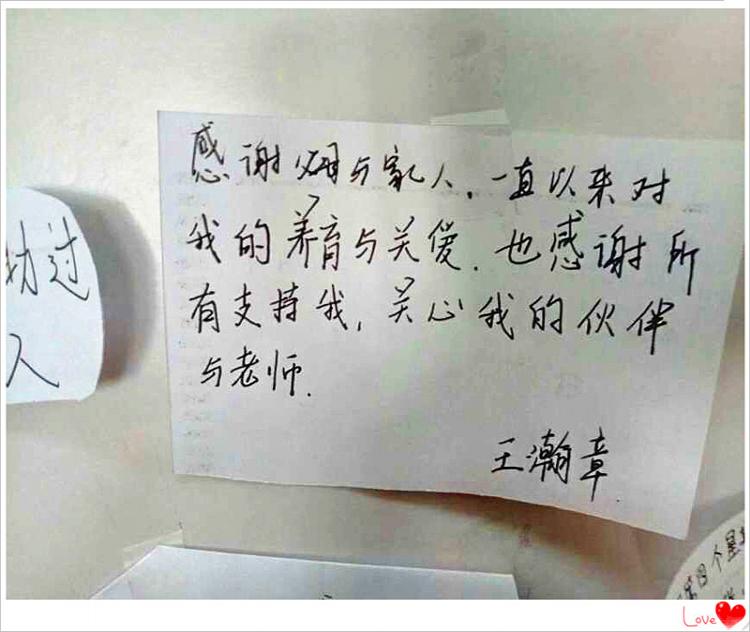 感谢父母与家人，一直以来对
我的养育与关爱．也感谢所
有支持我，关心我的伙伴
与老师．
王瀚章．
劝过
人
四个星
Love